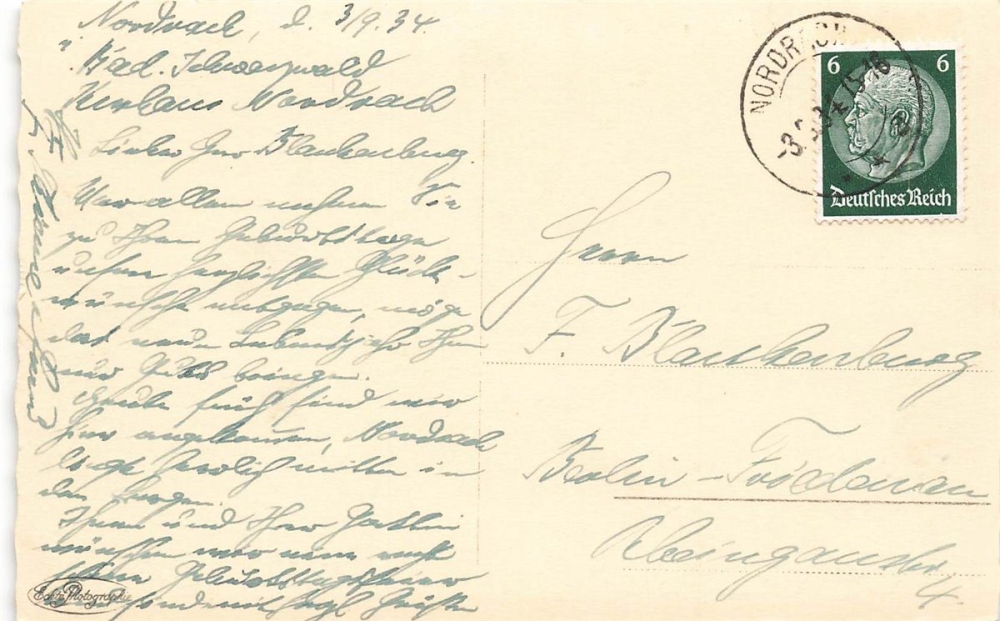 Nordrach, d. 3/9.34.
Bad. Schwarzwald
Kurhaus Nordrach
Lieber Herr Blankenburg.
Vor allem nehmen Sie
zu Ihrem Geburtstage
unsere herzlichsten Glück-
wünsche entgegen, möge
das neue Lebensjahr Ihnen
nur Gutes bringen.
Heute früh sind wir
hier angekommen, Nordrach
liegt herrlich mitten in
den Bergen.
Ihnen und Ihrer Gattin
wünschen wir eine recht
Geburtstagsfeier
und sind mit herzl. Grüßen
Echte Photographie
NORDRACH
-3.9.34 15-16
6 6
Deutsches Reich
Herrn
F. Blankenburg
Berlin-Friedenau
Rheingaustr.
4.